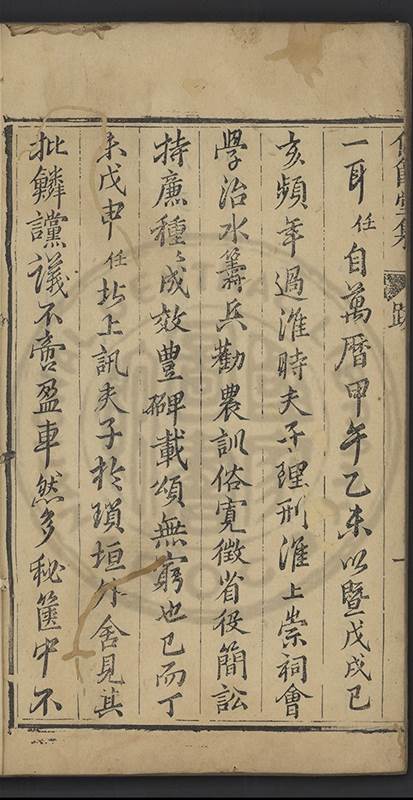 跋
一耳任自萬曆甲午乙未以暨戊戌己
亥頻年過淮時夫子理刑淮上崇祠會
學治水籌兵勸農訓俗寬徵省役簡訟
持廉種〻成效豊碑載頌無窮也已而丁
未戊申任北上訊夫子於瑣垣外舍見其
批鱗讜議不啻盈車然多秘篋中不